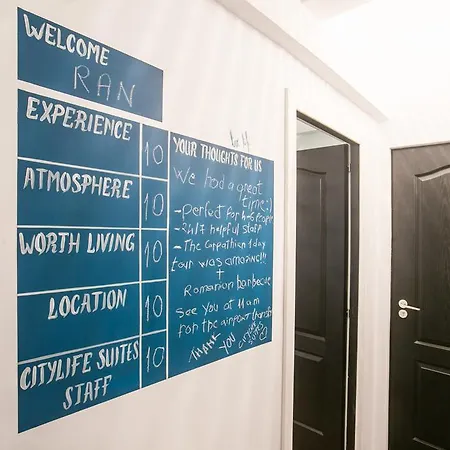 WELCOME
RAN
EXPERIENCE 10
ATMOSPHERE 10
WORTH LIVING 10
LOCATION 10
CITYLIFE SUITES
STAFF 10
YOUR THOUGHTS FOR US
We had a great
time :)
- Perfect for 4-6 People
- 24/7 helpful staff
- The Carpathian 1 day
tour was amazing!!!
+
Romanian barbecue
See you at 11am
for the airport transfer
THANK
YOU